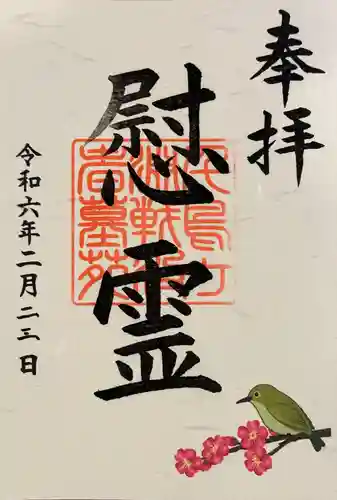 奉拝
慰霊
令和六年二月二三日